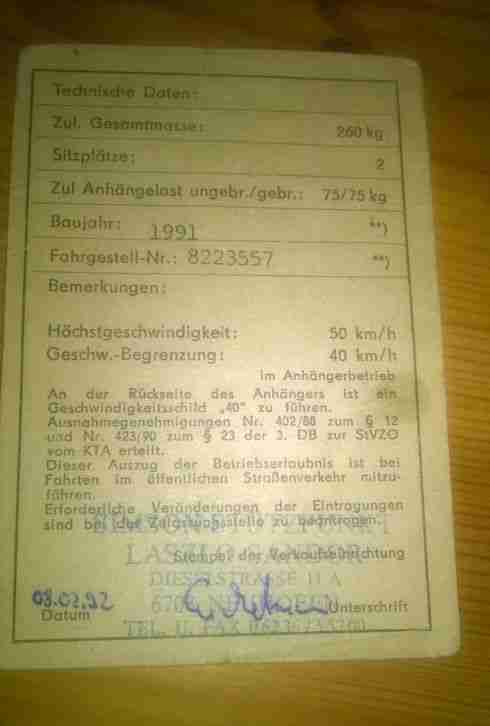 Technische Daten:
Zul. Gesamtmasse: 260 kg
Sitzplätze: 2
Zul Anhängelast ungebr./gebr.: 75/75 kg
Baujahr: 1991 **)
Fahrgestell-Nr.: 8223557 **)
Bemerkungen:
Höchstgeschwindigkeit: 50 km/h
Geschw.-Begrenzung: 40 km/h
im Anhängerbetrieb
An der Rückseite des Anhängers ist ein
Geschwindigkeitsschild „40" zu führen.
Ausnahmegenehmigungen Nr. 402/88 zum § 12
und Nr. 423/90 zum § 23 der 3. DB zur StVZO
vom KTA erteilt.
Dieser Auszug der Betriebserlaubnis ist bei
Fahrten im öffentlichen Straßenverkehr mitzu-
führen.
Erforderliche Veränderungen der Eintragungen
sind bei der Zulassungsstelle zu beantragen.
Stempel der Verkaufseinrichtung
DIESELSTRASSE 11 A
Datum Unterschrift
TEL. U. FAX